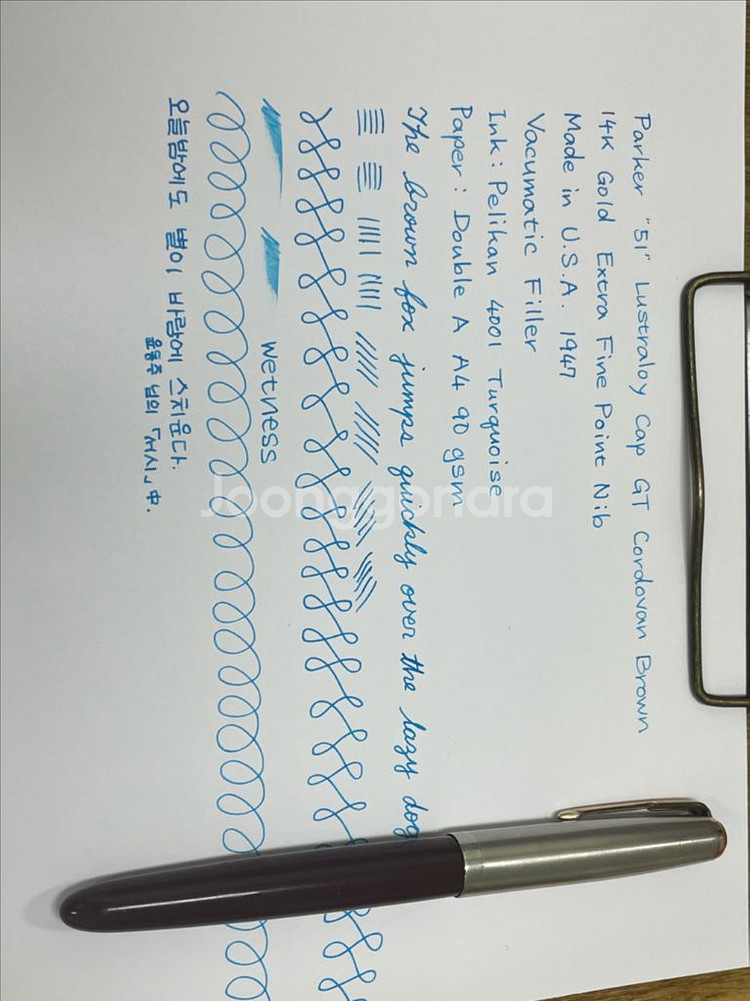 Parker "51" Lustraloy Cap GT Cordovan Brown
14K Gold Extra Fine Point Nib
Made in U.S.A. 1947
Vacumatic Filler
Ink : Pelikan 4001 Turquoise
Paper : Double A A4 90 gsm
The brown fox jumps quickly over the lazy dog
wetness
오늘밤에도 별이 바람에 스치운다.
윤동주 님의 「서시」 中.
Joonggonara